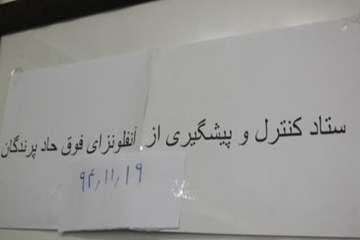 ستاد کنترل و پیشگیری از آنفلونزای فوق حاد پرندگان
۹۴٫۱۱٫۱۹